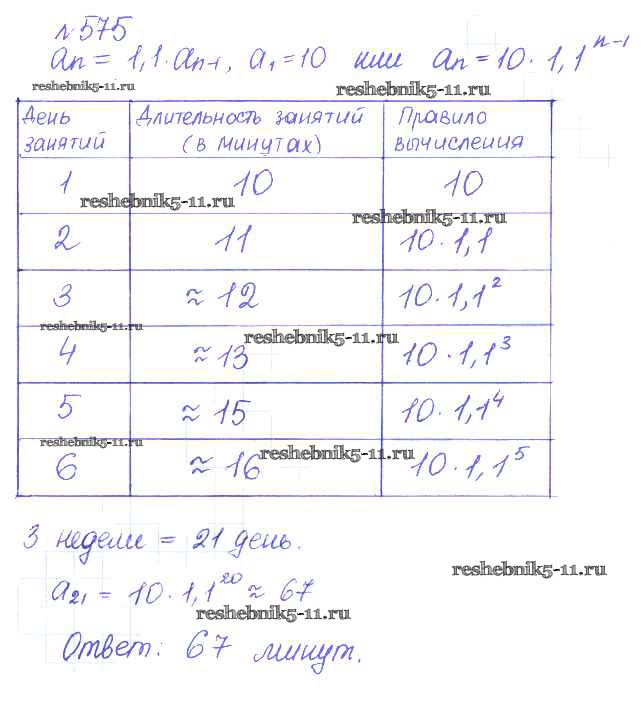 №575
an = 1,1·an-1, a1=10 или an=10·1,1^n-1
reshebnik5-11.ru reshebnik5-11.ru
День занятий Длительность занятий (в минутах) Правило вычисления
1 10 10
reshebnik5-11.ru reshebnik5-11.ru
2 11 10·1,1
3 ≈12 10·1,1^2
reshebnik5-11.ru reshebnik5-11.ru
4 ≈13 10·1,1^3
5 ≈15 10·1,1^4
reshebnik5-11.ru reshebnik5-11.ru
6 ≈16 10·1,1^5
3 недели = 21 день.
reshebnik5-11.ru
a21 = 10·1,1^20 ≈ 67
reshebnik5-11.ru
Ответ: 67 минут.